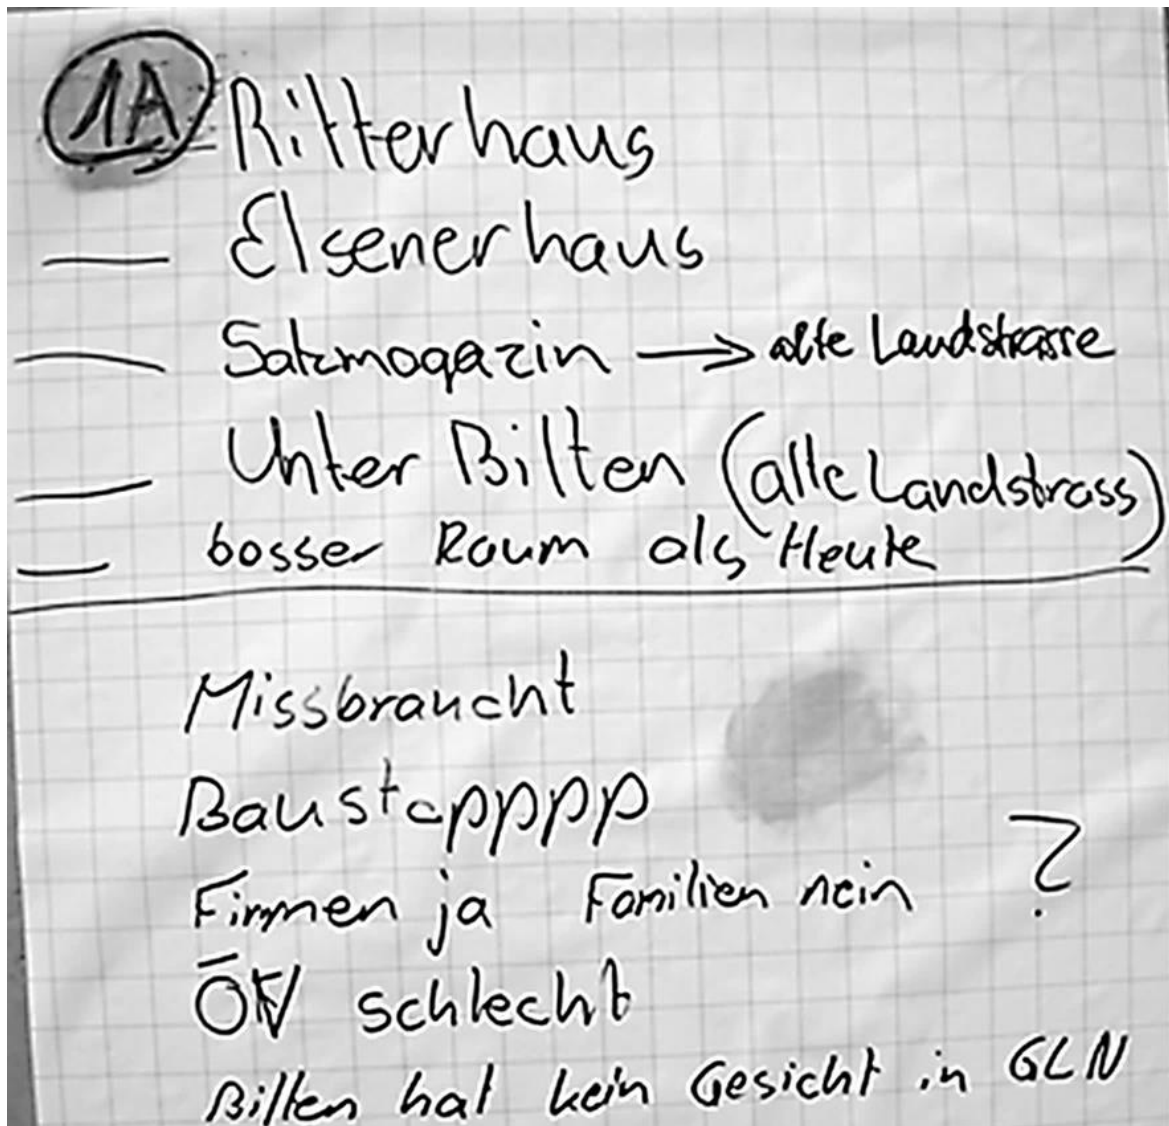 1A Ritterhaus
Elsenerhaus
Satzmogazin → alte Landstrasse
Unter Bilten (alte Landstrass)
bosser Raum als Heute
Missbraucht
Baustopppp
Firmen ja Familien nein ?
ÖV schlecht
Bilten hat kein Gesicht in GLN